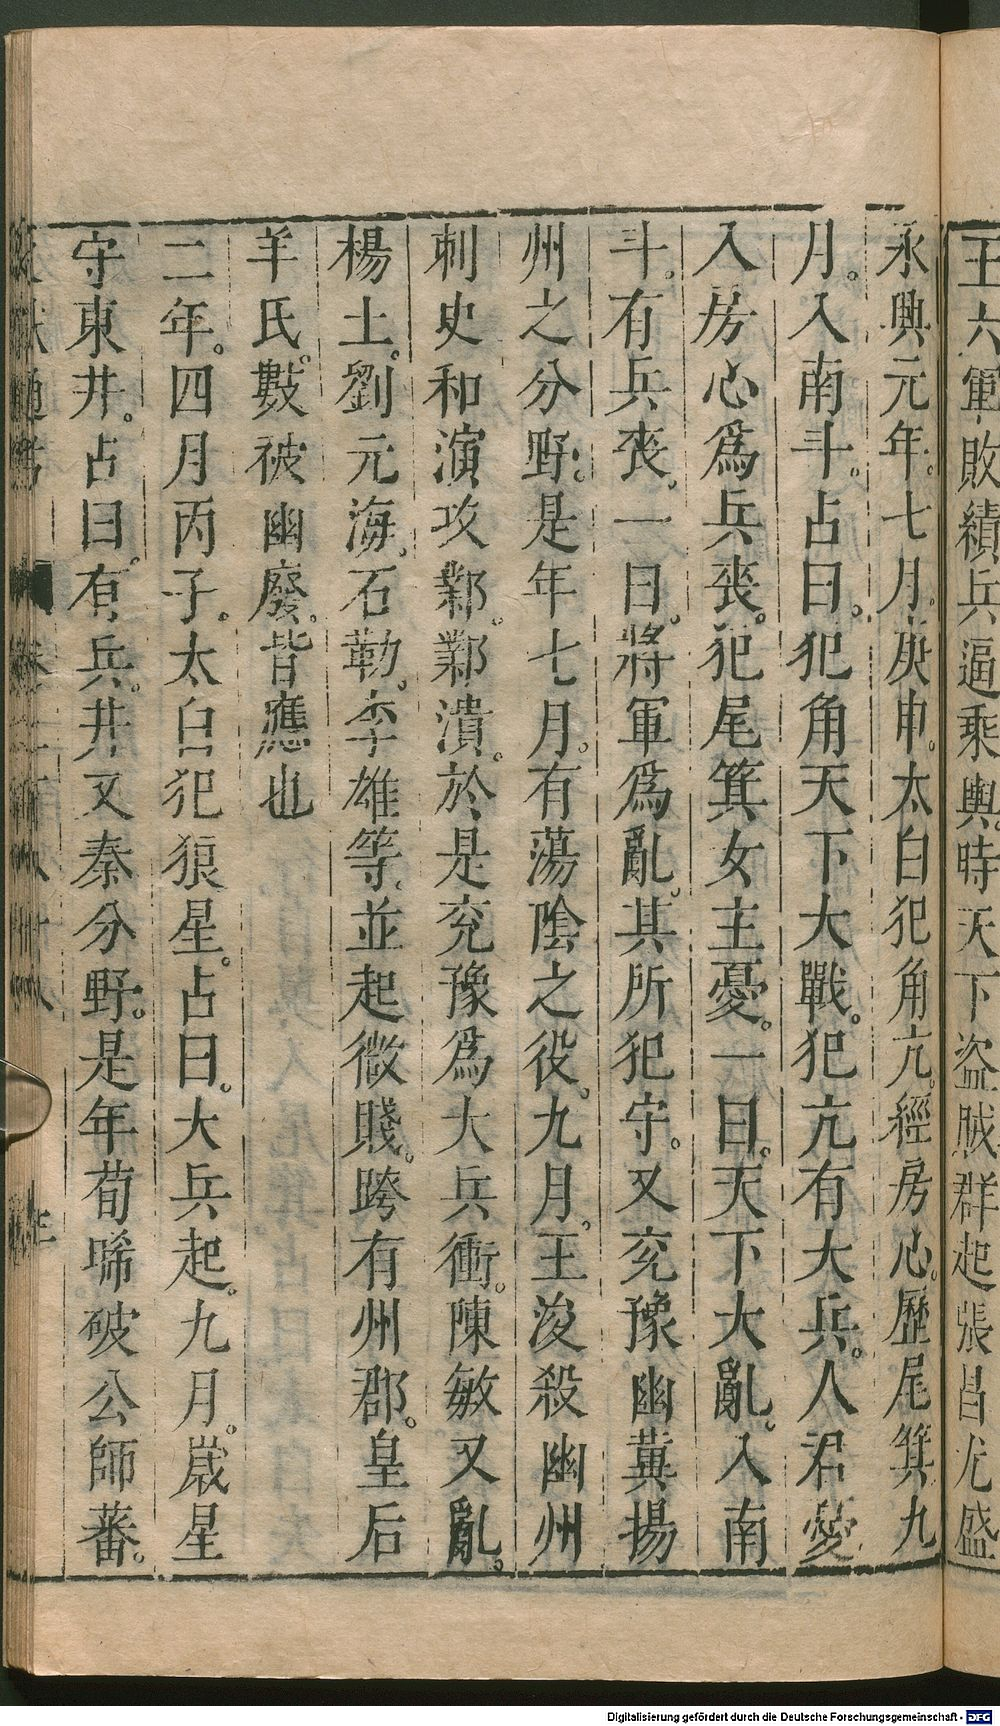 王六軍敗績兵逼乘輿時天下盗賊群起張昌尤盛
永興元年七月庚申太白犯角亢經房心歷尾箕九
月入南斗占曰犯角天下大戰犯亢有大兵人君憂
入房心爲兵喪犯尾箕女主憂一曰天下大亂入南
斗有兵喪一曰將軍爲亂其所犯守又兖豫幽冀揚
州之分野是年七月有蕩陰之役九月王浚殺幽州
刺史和演攻鄴鄴潰於是兖豫爲大兵衝陳敏又亂
楊土劉元海石勒李雄等並起微賤跨有州郡皇后
羊氏數被幽廢皆應也
二年四月丙子太白犯狼星占曰大兵起九月歲星
守東井占曰有兵井又秦分野是年苟晞破公師蕃
Digitalisierung gefördert durch die Deutsche Forschungsgemeinschaft - DFG